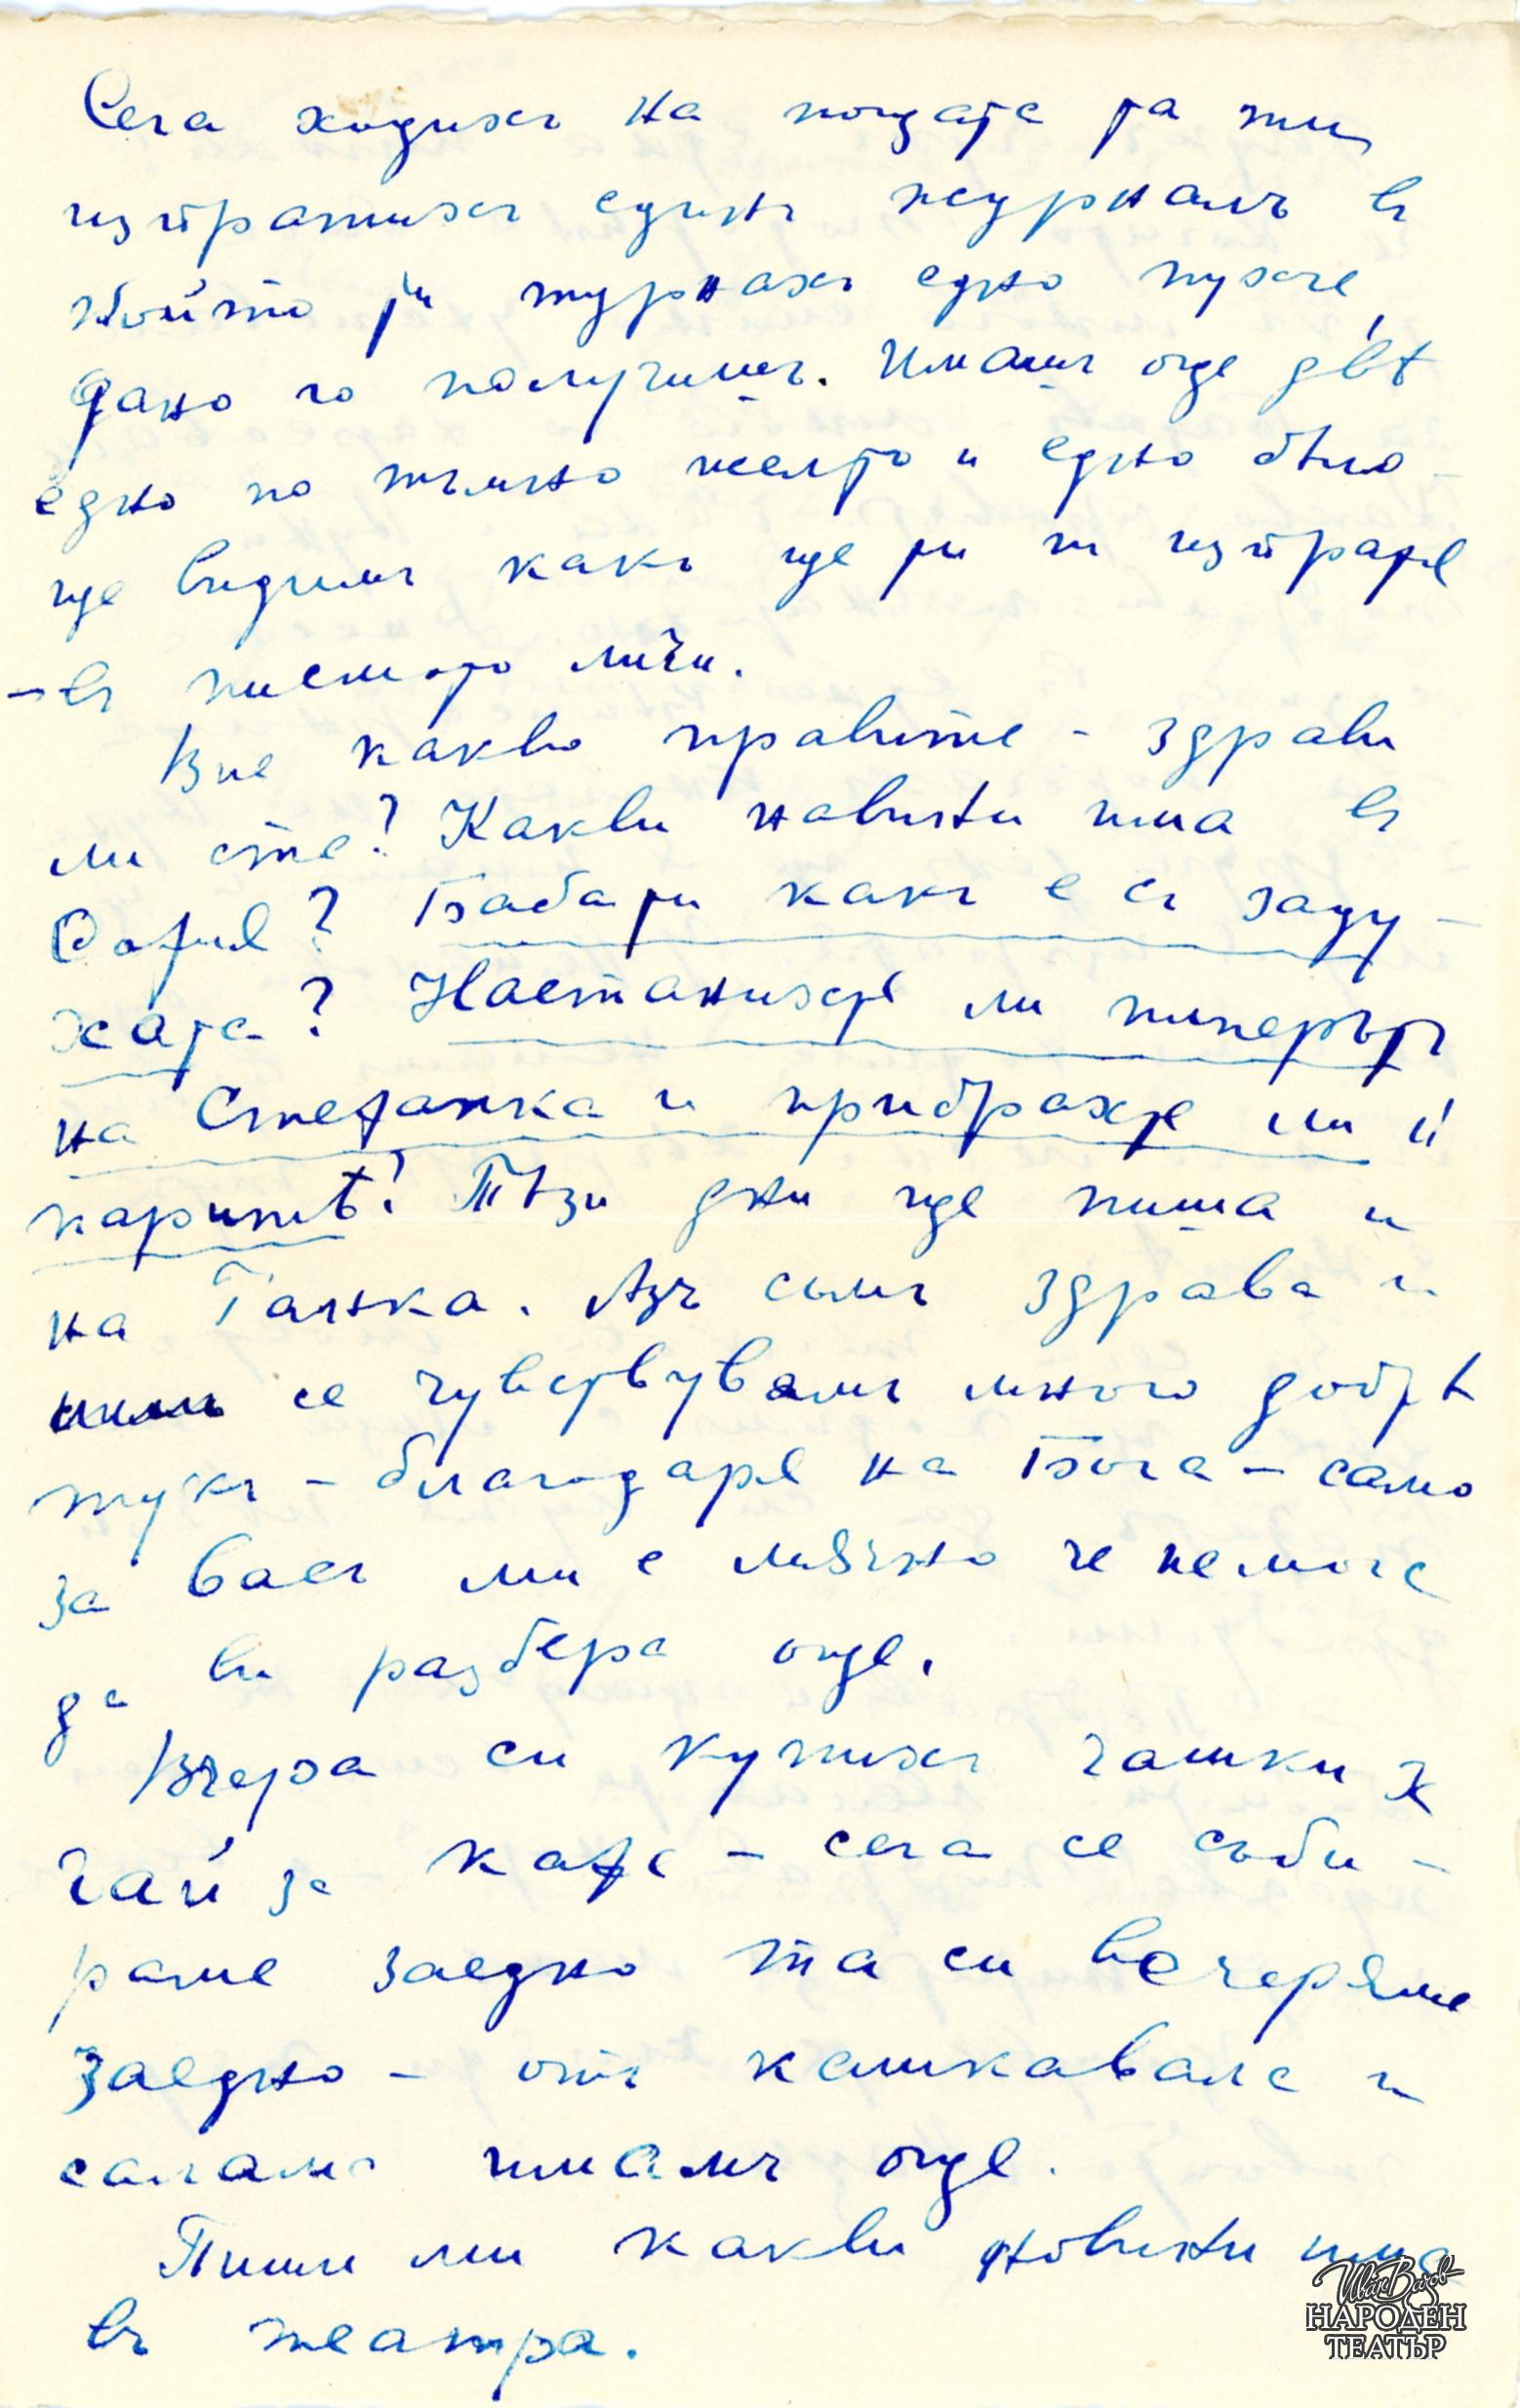 Сега ходихъ на пощата да ти
изпратихъ единъ журналъ въ
който ти турнахъ едно пухче,
дано го получишъ. Имамъ още двѣ
едно по тъмно желто и едно бѣло -
ще видимъ какъ ще ти ги изпратя
- въ писмото личи.
Вие какво правите - здрави
ли сте? Какви новини има въ
София? Баба ти какъ е съ заду-
хата? Настанихте ли пиперътъ
на Стефанка и прибрахте ли й
паритѣ? Тѣзи дни ще пиша и
на Ганка. Азъ съмъ здрава и
се чувствувамъ много добрѣ
тукъ - благодаря на Бога - само
за васъ ми е мъчно че немога
да ви разбера още.
Вчера си купихъ чашки за
чай за кафе - сега се съби-
раме заедно та си вечеряме
заедно - отъ кашкавала и
салама имамъ още.
Пиши ми какви новини има
въ театра.
Иванъ Вазовъ
НАРОДЕН
ТЕАТЪР